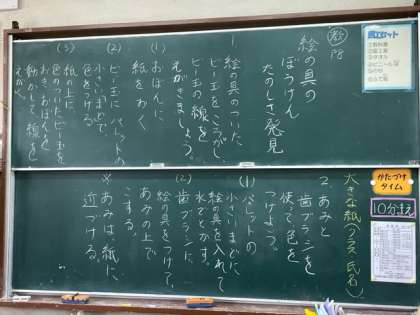 図工セット
教 P8
絵の具の
ぼうけん
たのしさ発見
絵の具のついた
ビー玉をころがし、
ビー玉の線を
えがきましょう。
(1)
おぼんに
紙をわく
(2)
ビー玉に パレットの
小さいまどで、
色をつける
(3)
紙の上に
色のついたビー玉を
おき、おぼんを
動かして、線を
えがく。
かたづけ
タイム
10分まえ
大きな紙(クラス 氏名)
2. あみと
歯ブラシを
使って色を
つけよう。
(1) パレットの
小さいまどに
絵の具を入れて
水でとかす。
(2) 歯ブラシに
絵の具をつけて、
あみの上で
こする。
※あみは紙に
近づける。